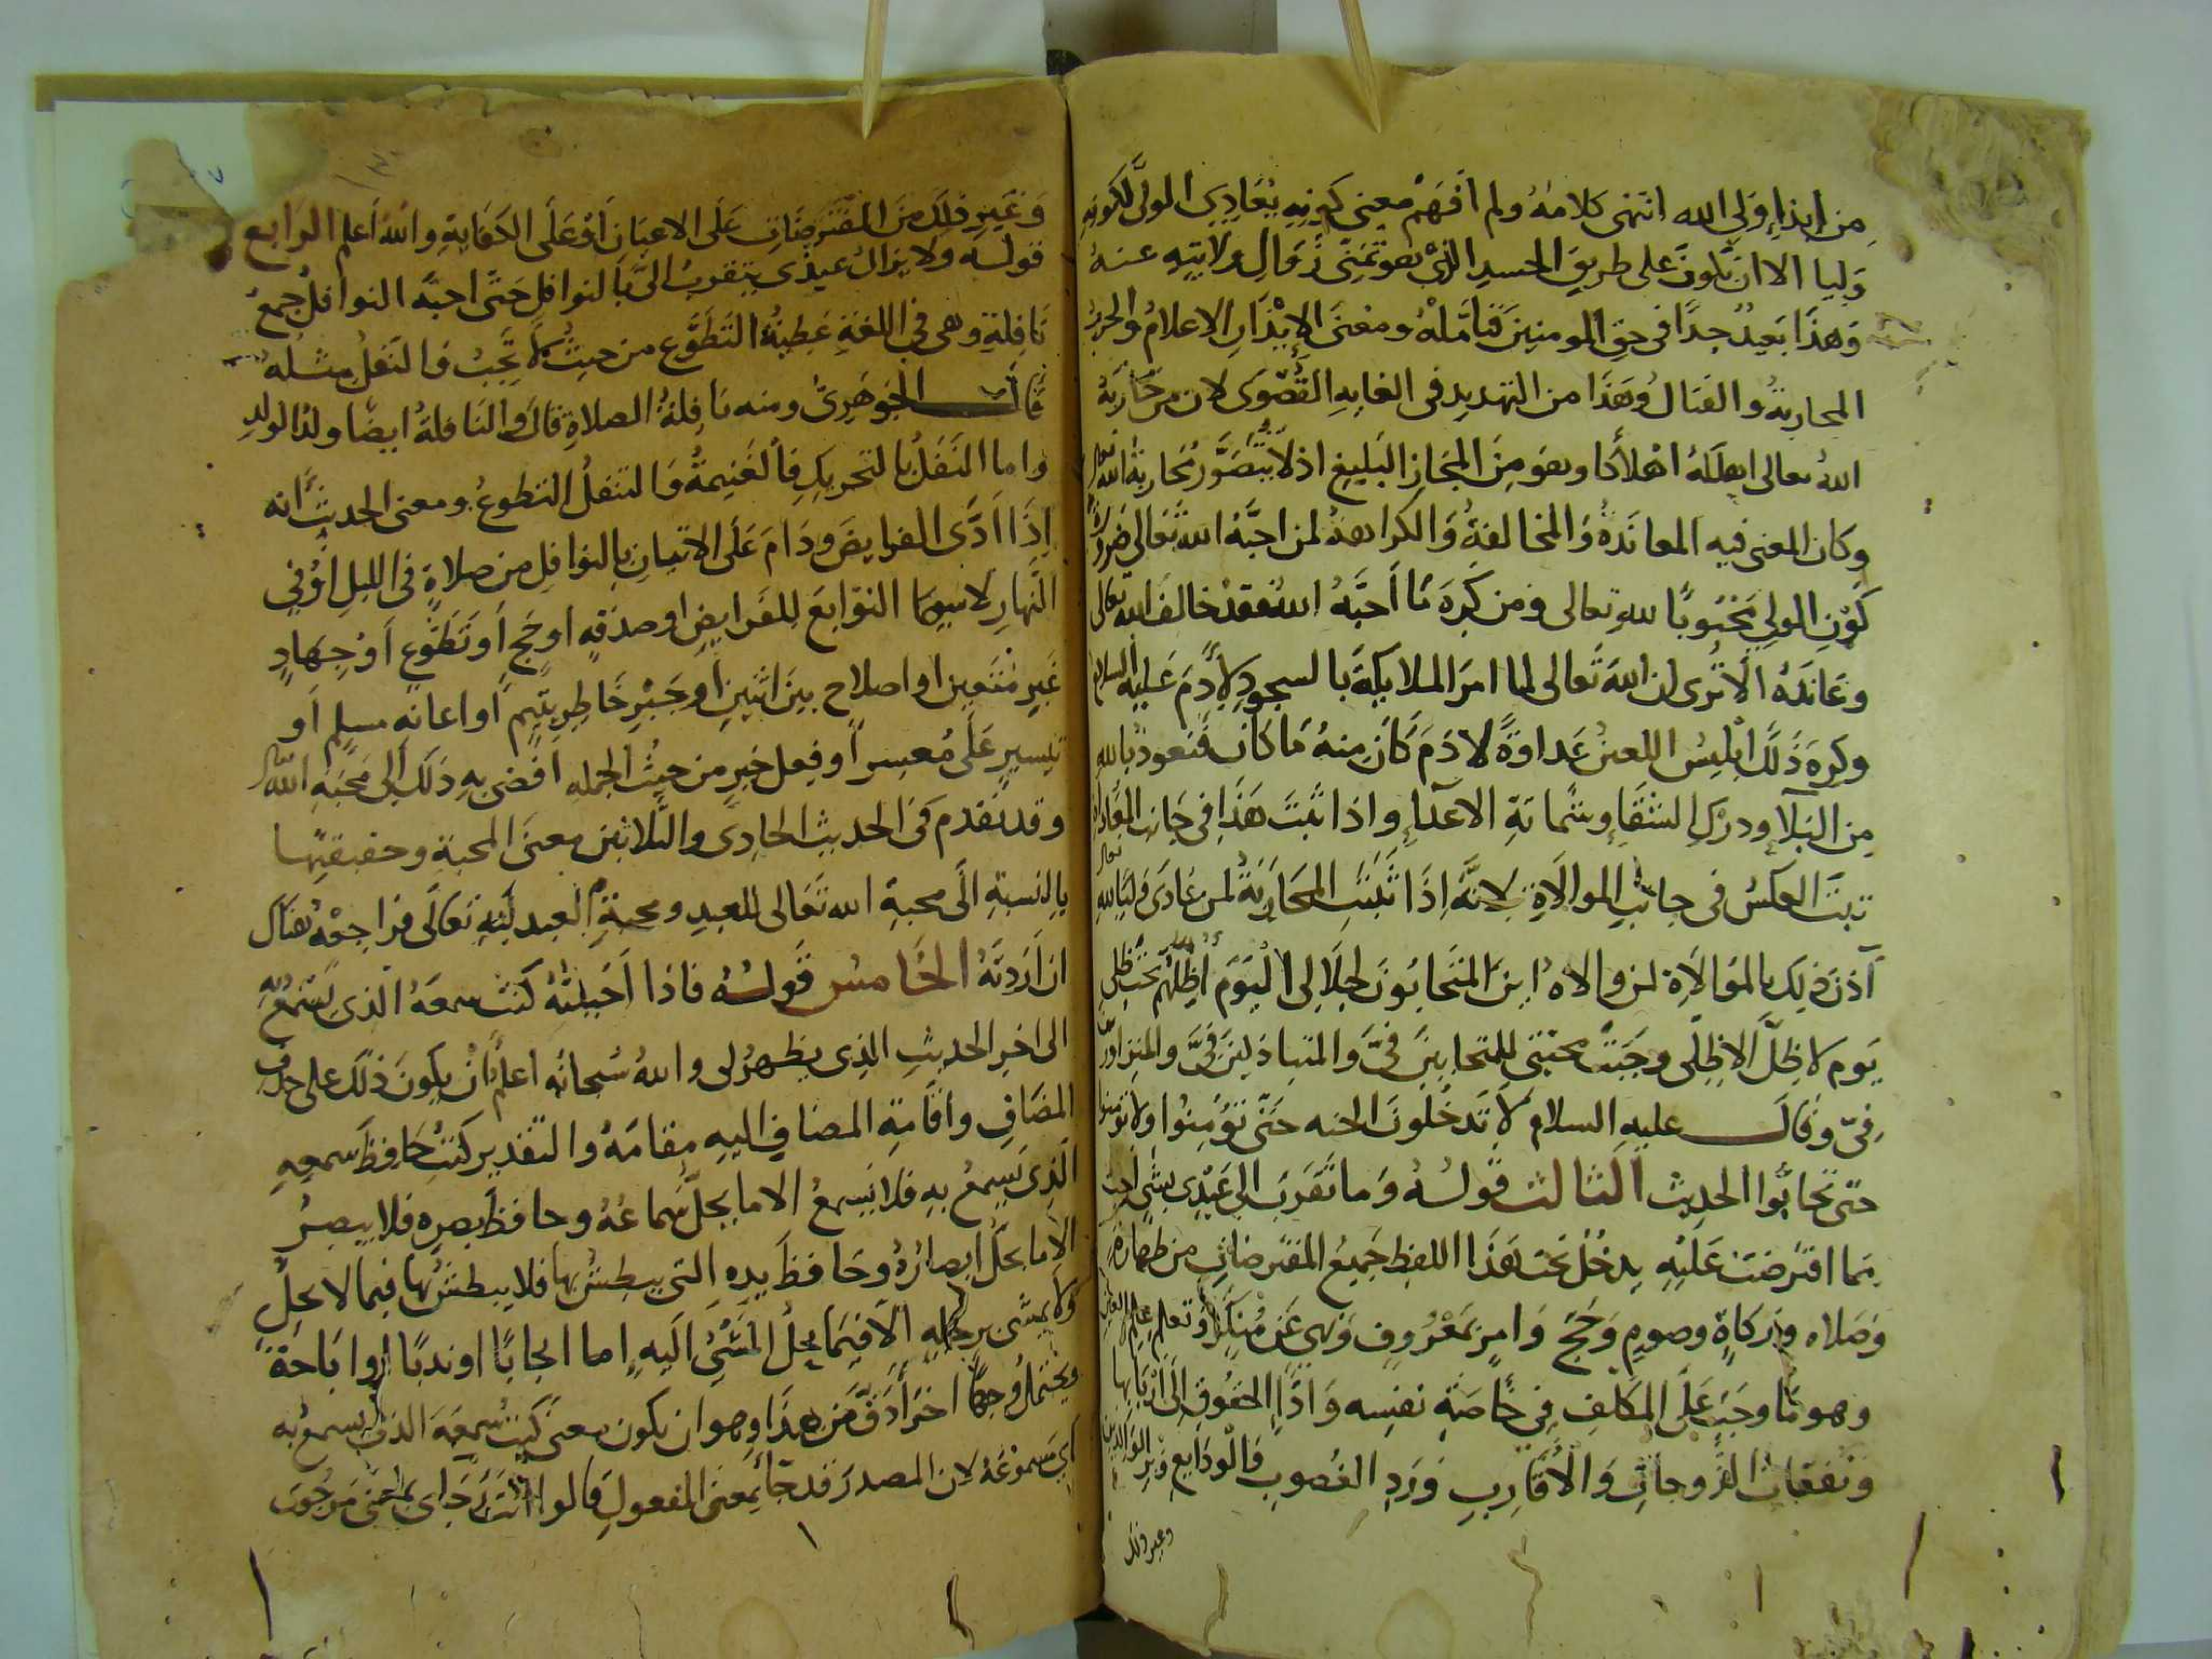 من ايذاء ولي الله انتهى كلامه ولم افهم معنى كونه يعادي الولي لكونه
وليا الا ان يكون على طريق الحسد الذي هو تمني زوال ولايته عنه
وهذا بعيد جدا في حق المومنين فتامله ومعنى الايذان الاعلام والحرب
المحاربة والقتال وهذا من التهديد في الغايه القصوى لان من حاربه
الله تعالى اهلكه اهلاكا وهو من المجاز البليغ اذ لا يتصور محاربة الله تعالى
وكان المعنى فيه المعاندة والمخالفة والكراهة لمن احبه الله تعالى ضرورة
كون الولي محبوبا لله تعالى ومن كره ما احبه الله فقد خالف الله تعالى
وعانده الا ترى ان الله تعالى لما امر الملايكة بالسجود لادم عليه السلام
وكره ذلك ابليس اللعين عداوة لادم كان منه ما كان فنعوذ بالله
من البلا ودرك الشقاء وشماتة الاعداء واذا ثبت هذا في جانب المعاداة
ثبت العكس في جانب الموالاة لانه اذا ثبتت المحاربة لمن عادى وليا لله تعالى
آذن ذلك بالموالاة لمن والاه اين المتحابون لجلالي اليوم اظلهم تحت ظلي
يوم لا ظل الا ظلي وجبت محبتي للمتحابين في والمتباذلين في والمتزاورين
في وقال عليه السلام لا تدخلون الجنه حتى تؤمنوا ولا تومنوا
حتى تحابوا الحديث الثالث قوله وما تقرب الي عبدي بشي احب
مما افترضت عليه يدخل تحت هذا اللفظ جميع المفترضات من طهارة
وصلاه وزكاة وصوم وحج وامر بمعروف ونهي عن منكر وتعلم علم
وهو ما وجب على المكلف في خاصة نفسه واداء الحقوق الى اربابها
ونفقات الزوجات والاقارب ورد الغصوب والودايع وبر الوالدين
وغير ذلك
وغير ذلك من المفترضات على الاعيان او على الكفاية والله اعلم الرابع
قوله ولا يزال عبدي يتقرب الي بالنوافل حتى احبه النوافل جمع
نافلة وهي في اللغة عطية التطوع من حيث لا تجب والنفل مثله
قال الجوهري ومنه نافلة الصلاة قال والنافلة ايضا ولد الولد
واما النفل بالتحريك فالغنيمة والتنفل التطوع ومعنى الحديث انه
اذا ادى الفرايض ودام على الاتيان بالنوافل من صلاة في الليل او في
النهار لا سيما التوابع للفرايض او صدقه او حج او تطوع او جهاد
غير متعين او اصلاح بين اثنين او جبر خاطر يتيم او اعانه مسلم او
تيسير على معسر او فعل خير من حيث الجمله افضى به ذلك الى محبة الله تعالى
وقد تقدم في الحديث الحادي والثلاثين معنى المحبة وحقيقتها
بالنسبة الى محبة الله تعالى للعبد ومحبة العبد لله تعالى فراجعه هناك
ان اردته الخامس قوله فاذا احببته كنت سمعه الذي يسمع به
الى اخر الحديث الذي يظهر لي والله سبحانه اعلم ان يكون ذلك على حذف
المضاف واقامة المضاف اليه مقامه والتقدير كنت حافظ سمعه
الذي يسمع به فلا يسمع الا ما يحل سماعه وحافظ بصره فلا يبصر
الا ما يحل ابصاره وحافظ يده التي يبطش بها فلا يبطش بها فيما لا يحل
ولا يمشي برجله الا فيما يحل المشي اليه اما ايجابا او ندبا او اباحة
ويحتمل وجها اخر ادق من هذا وهو ان يكون معنى كنت سمعه الذي يسمع به
اي مسموعه لان المصدر قد جا بمعنى المفعول قالوا انت رجاي بمعنى مرجوي